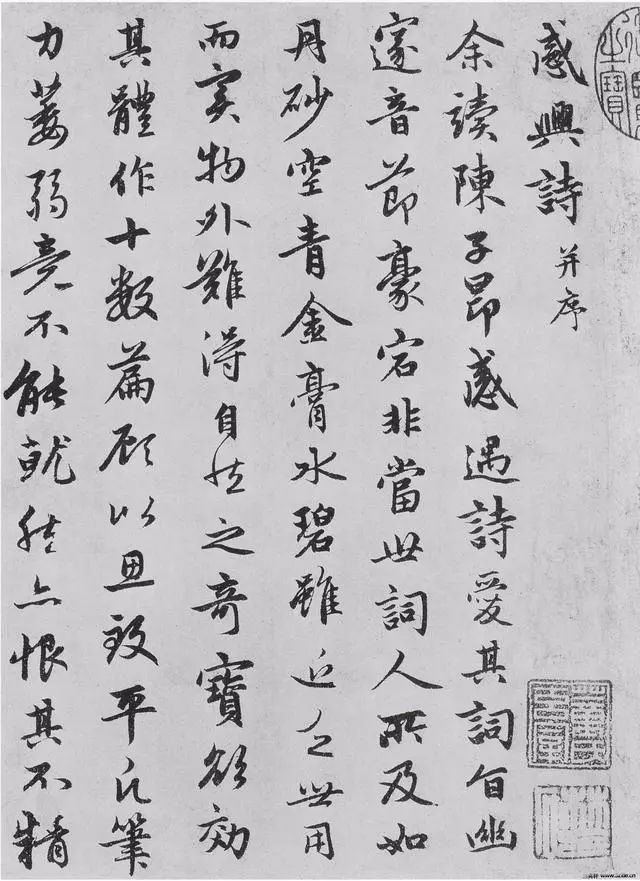 感興詩并序
余讀陳子昂感遇詩愛其詞旨幽
邃音節豪宕非當世詞人所及如
丹砂空青金膏水碧雖近乏世用
而实物外難得自然之奇寶欲効
其體作十數篇顧以思致平凡筆
力萎弱竟不能就然亦恨其不精
之寶